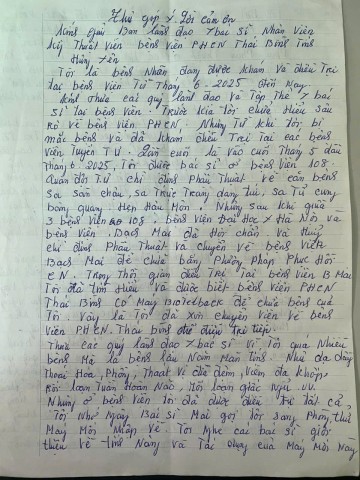 Thư góp ý. Lời cảm ơn
Kính gửi Ban lãnh đạo, bác sĩ Nhân Viên
Kỹ Thuật Viên bệnh Viện PHCN Thái Bình tỉnh
Hưng Yên
Tôi là bệnh Nhân đang được khám Và điều Trị
tại bệnh Viện Từ Tháng 6-2025 đến Nay
Kính thưa các quý lãnh đạo Và Tập thể bác
sĩ tại bệnh Viện. Trước kia Tôi chưa Hiểu sâu
Rõ Về bệnh Viện PHCN. Nhưng Từ khi tôi bị
mắc bệnh Và đã khám chữa Trị Tại các bệnh
Viện Tuyến T.Ư. Lần cuối là vào cuối Tháng 5 đầu
Tháng 6/2025, Tôi được bác sĩ ở bệnh Viện 108
Quân đội T.Ư chỉ định Phẫu Thuật Về căn bệnh
sa sàn chậu, sa Trực Tràng dạng túi, sa Tử cung
bàng quang Hẹn Hậu Môn. Nhưng sau khi qua
3 bệnh Viện 108, bệnh Viện Đại Học Y Hà Nội Và
bệnh Viện Bạch Mai đã Hội chẩn Và Huỷ
chỉ định Phẫu Thuật Và chuyển Về bệnh Viện
Bạch Mai để chữa bằng Phương Pháp Phục Hồi
CN. Trong Thời gian điều Trị Tại bệnh Viện B Mai
Tôi đã tìm Hiểu Và được biết bệnh Viện PHCN
Thái Bình có Máy Biofeedback để chữa bệnh của
Tôi. Vậy là Tôi đã xin chuyển Viện Về bệnh
Viện PHCN Thái Bình để điều trị tiếp.
Thưa các quý lãnh đạo, bác sĩ Vì Tôi quá Nhiều
bệnh Mà là bệnh lâu Năm Mãn Tính. Như dạ dày
Thoái Hóa, Phổi, Thoát Vị đĩa đệm, Viêm đa khớp,
Rối loạn Tuần Hoàn Não, Rối loạn giấc Ngủ .VV.
Nhưng ở bệnh Viện tôi đã được điều trị tất cả.
Tôi Nhớ Ngày Bác sĩ Mai gọi Tôi sang Phòng Thử
Máy Mới Nhập Về. Tôi Nghe các bác sĩ giới
thiệu Về Tính Năng Và Tác dụng của Máy Mới Này